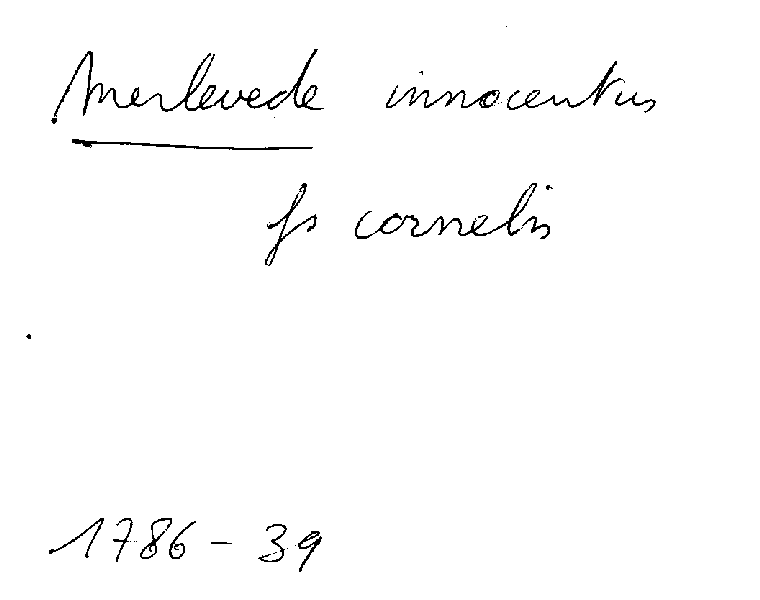 Merlevede innocentus
fs cornelis
1786 - 39